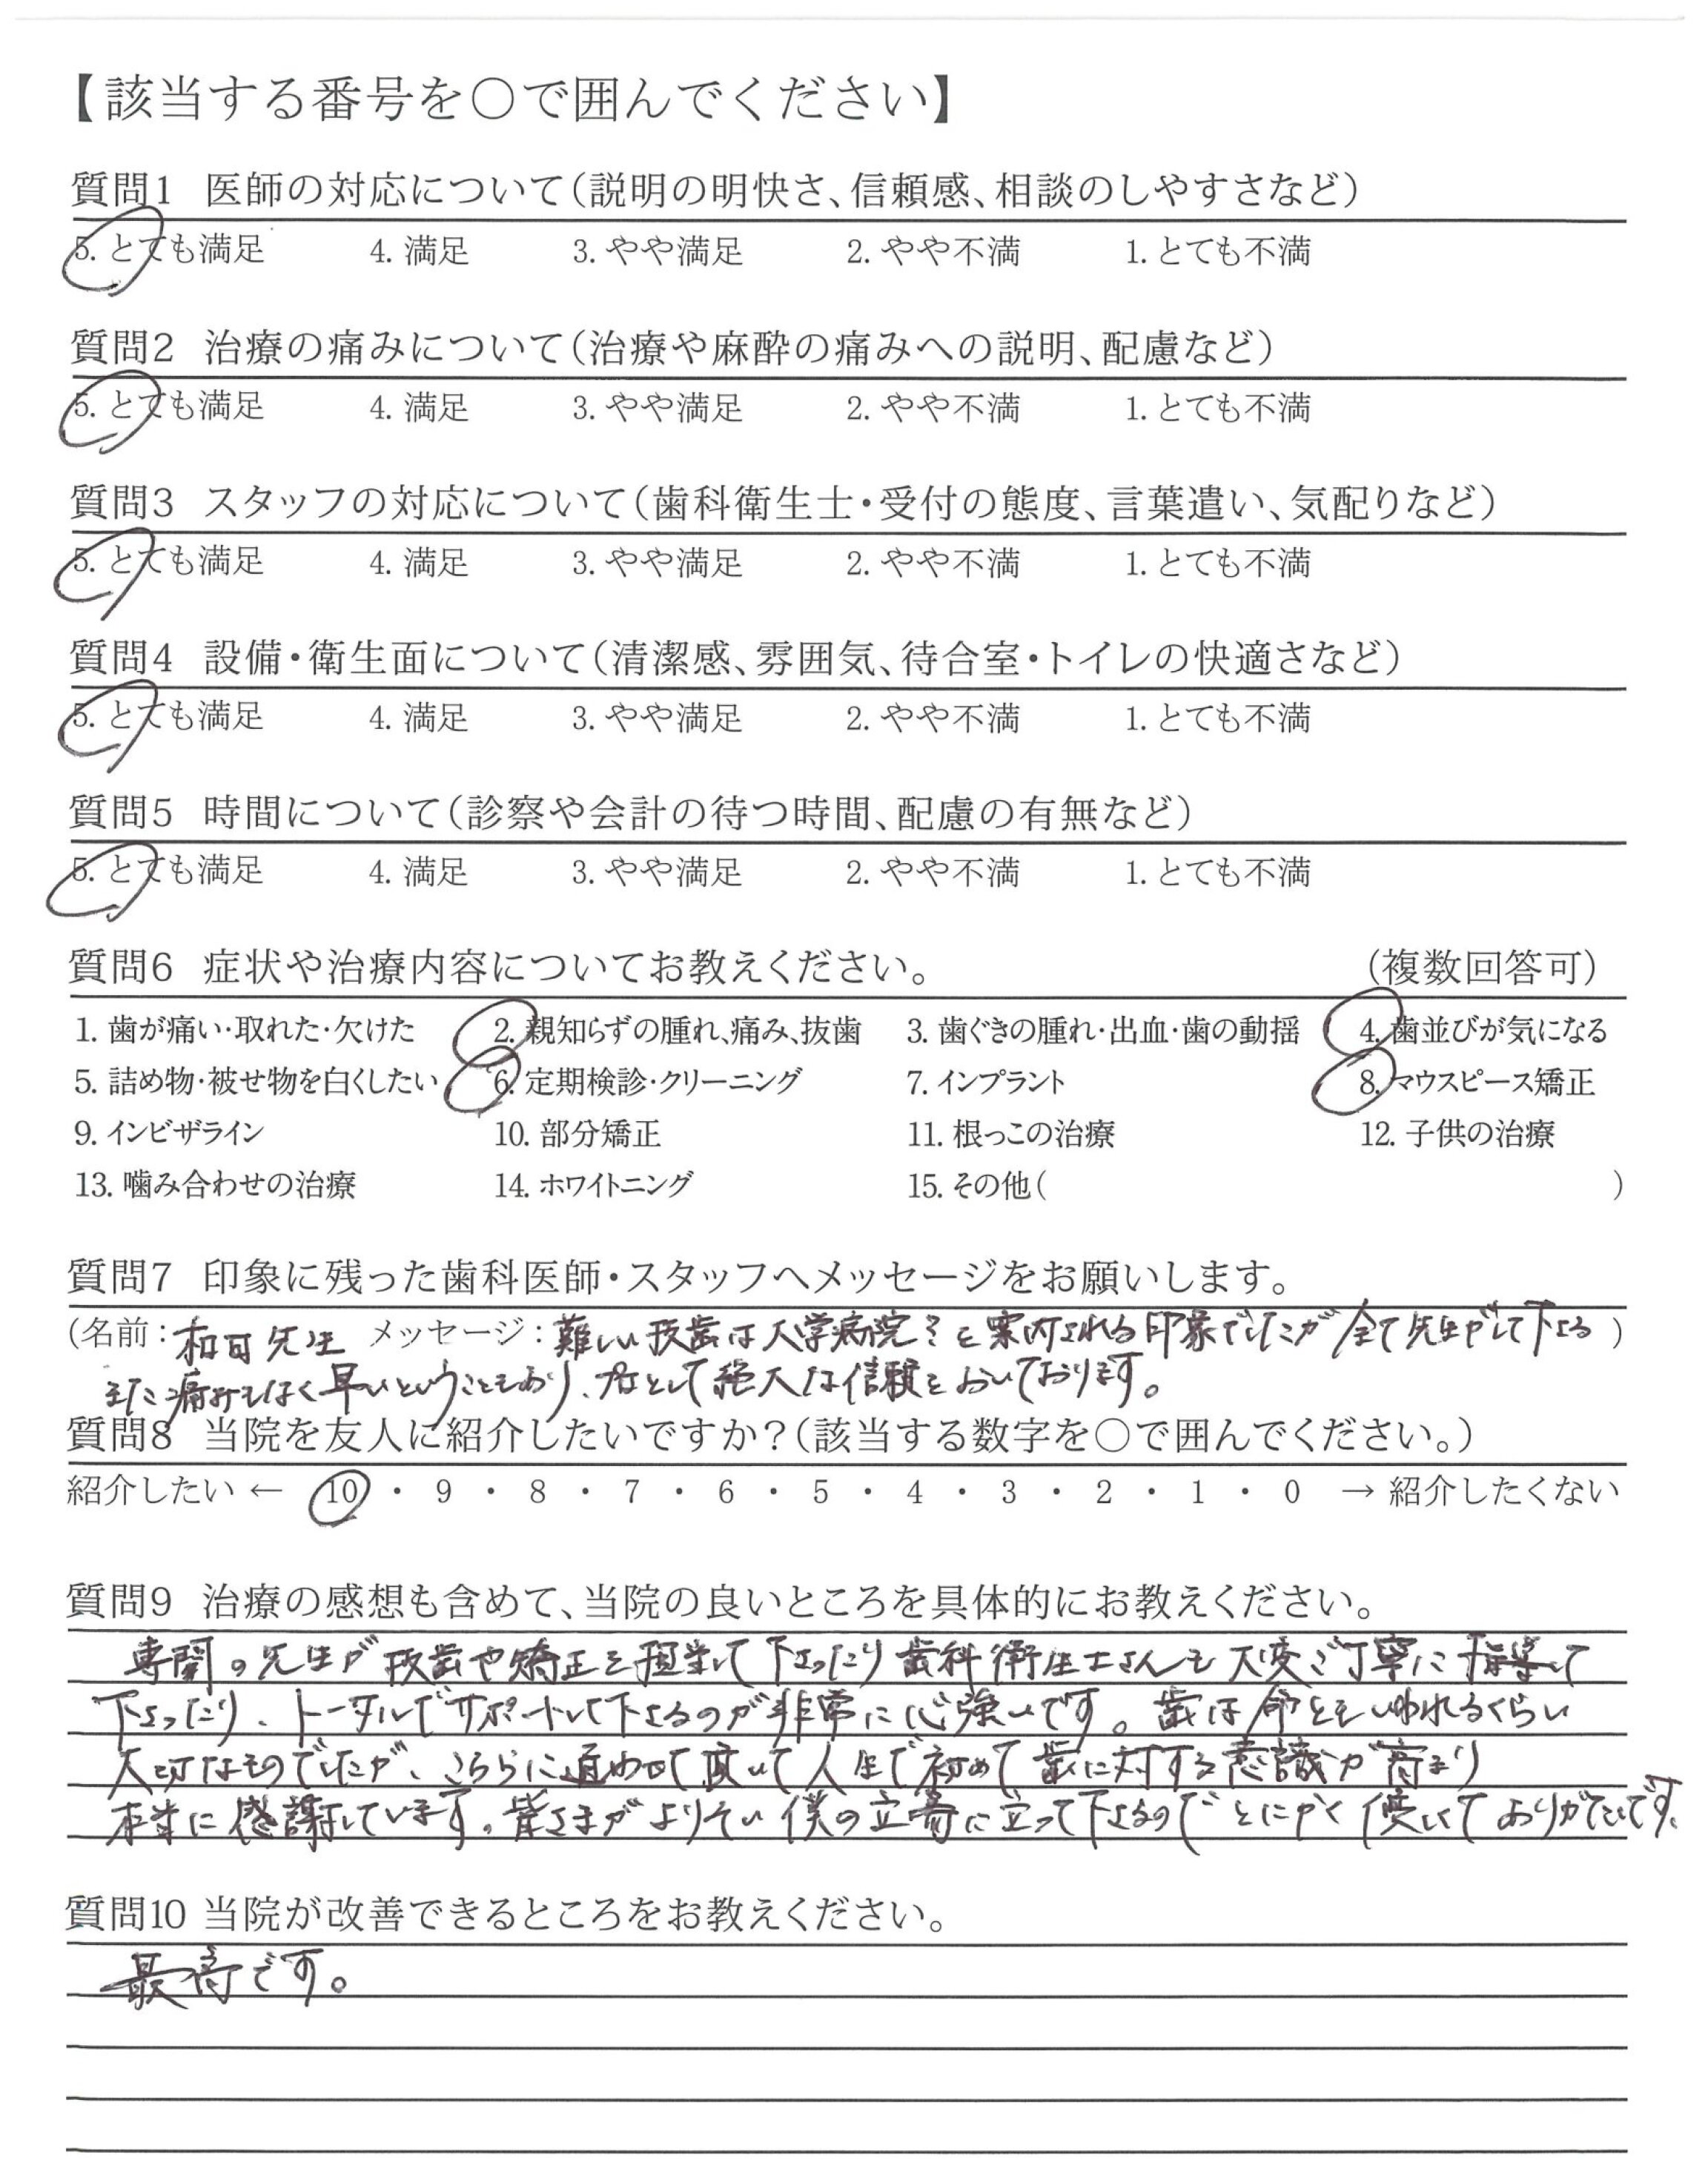 【該当する番号を○で囲んでください】
質問1 医師の対応について(説明の明快さ、信頼感、相談のしやすさなど)
5. とても満足 4. 満足 3. やや満足 2. やや不満 1. とても不満
質問2 治療の痛みについて(治療や麻酔の痛みへの説明、配慮など)
5. とても満足 4. 満足 3. やや満足 2. やや不満 1. とても不満
質問3 スタッフの対応について(歯科衛生士・受付の態度、言葉遣い、気配りなど)
5. とても満足 4. 満足 3. やや満足 2. やや不満 1. とても不満
質問4 設備・衛生面について(清潔感、雰囲気、待合室・トイレの快適さなど)
5. とても満足 4. 満足 3. やや満足 2. やや不満 1. とても不満
質問5 時間について(診察や会計の待つ時間、配慮の有無など)
5. とても満足 4. 満足 3. やや満足 2. やや不満 1. とても不満
質問6 症状や治療内容についてお教えください。 (複数回答可)
1. 歯が痛い・取れた・欠けた 2. 親知らずの腫れ、痛み、抜歯 3. 歯ぐきの腫れ・出血・歯の動揺 4. 歯並びが気になる
5. 詰め物・被せ物を白くしたい 6. 定期検診・クリーニング 7. インプラント 8. マウスピース矯正
9. インビザライン 10. 部分矯正 11. 根っこの治療 12. 子供の治療
13. 噛み合わせの治療 14. ホワイトニング 15. その他( )
質問7 印象に残った歯科医師・スタッフへメッセージをお願いします。
(名前: 先生 メッセージ: 難しい抜歯は大学病院でと案内される印象でしたが全て先生がして下さる)
また痛みもなく早いということもあり、 として絶大な信頼をおいております。
質問8 当院を友人に紹介したいですか?(該当する数字を○で囲んでください。)
紹介したい ← 10 ・ 9 ・ 8 ・ 7 ・ 6 ・ 5 ・ 4 ・ 3 ・ 2 ・ 1 ・ 0 → 紹介したくない
質問9 治療の感想も含めて、当院の良いところを具体的にお教えください。
専門の先生が抜歯や矯正を担当して下さったり歯科衛生士さんも大変ご丁寧に指導して
下さったり、トータルでサポートして下さるのが非常に心強いです。歯は命ともいわれるくらい
大切なものでしたが、こちらに通わせて頂いて人生で初めて歯に対する意識が高まり
本当に感謝しています。皆さまがよりそい僕の立場に立って下さるのでとにかく優しくてありがたいです。
質問10 当院が改善できるところをお教えください。
最高です。